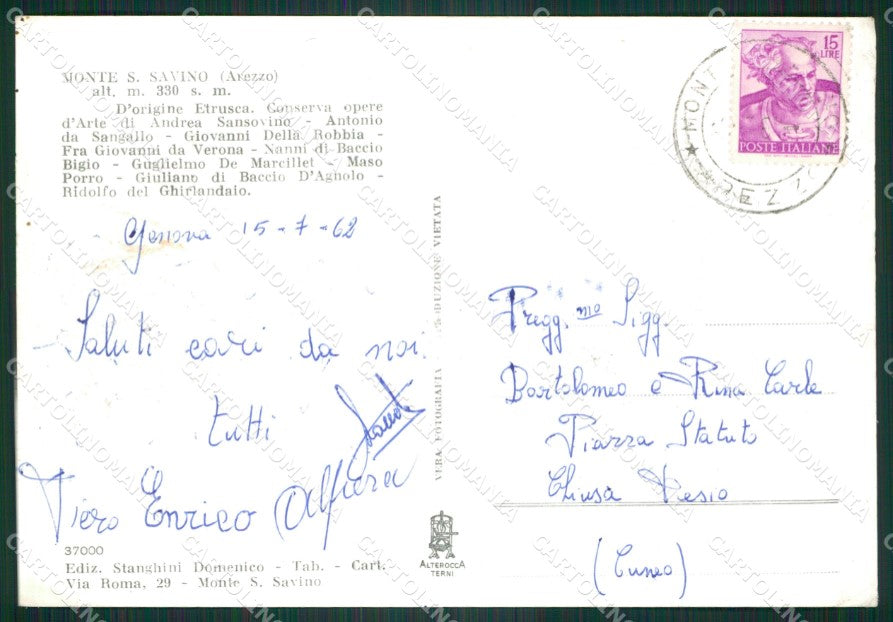 MONTE S. SAVINO (Arezzo)
alt. m. 330 s. m.
D'origine Etrusca. Conserva opere
d'Arte di Andrea Sansovino - Antonio
da Sangallo - Giovanni Della Robbia -
Fra Giovanni da Verona - Nanni di Baccio
Bigio - Guglielmo De Marcillet - Maso
Porro - Giuliano di Baccio D'Agnolo -
Ridolfo del Ghirlandaio.
Genova 15-7-62
Saluti cari da noi
tutti
Piero Enrico Alfiera
37000
Ediz. Stanghini Domenico - Tab. - Cart.
Via Roma, 29 - Monte S. Savino
VERA FOTOGRAFIA RIPRODUZIONE VIETATA
ALTEROCCA
TERNI
15
LIRE
POSTE ITALIANE
MONT
AREZZO
Pregg.mo Sigg.
Bartolomeo e Rina Carle
Piazza Statuto
Chiusa Pesio
(Cuneo)
CARTOLINOMANIA